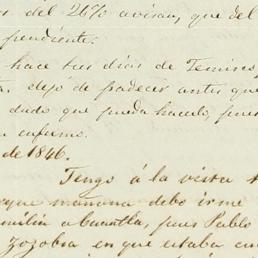 s del 26% avisan, que del
pendiente.
hace tres dias de Temisco
dejó de padecer antes que
dudo que pueda hacerlo, pues
enfermo.
de 1846.
Tengo á la vista
que mañana debo irme
milia a Cuautla, pues Pablo
zozobra en que estaba